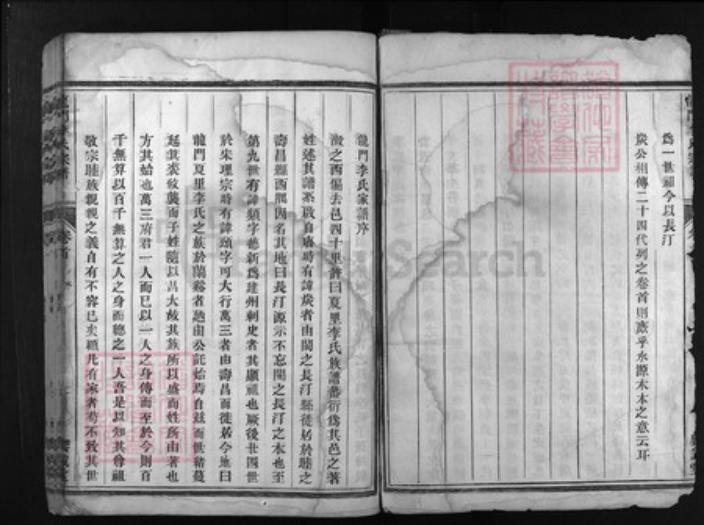 為一世祖今以長汀
炭公相傳二十四代列之卷首則庶乎水源木本之意云耳
龍門李氏家譜序
激之西偏去邑四十里許曰夏里李氏族譜蕃衍為其邑之著
姓述其譜系啟自唐時有諱炭者由閩之長汀縣徙居於睦之
壽昌縣西隅因名其地曰長汀源示不忘閩之長汀之本也至
第九世有諱頻字德新為建州刺史者其顯祖也厥後廿四世
於宋理宗時有諱頭字可大行萬三者由壽昌而徙居今地曰
龍門夏里李氏之族於蘭谿者迺由公託始焉自茲而世豬蔓
延其裘紋襲而子姓隨以昌大故其族所以盛而姓所由著也
方其始也萬三府君一人而已以一人之身傳而至於今則百
千無算以百千無算之人之身而總之一人吾是以知其尊祖
敬宗睦族親親之義自有不容已矣顧凡有家者苟不致其世
卷首